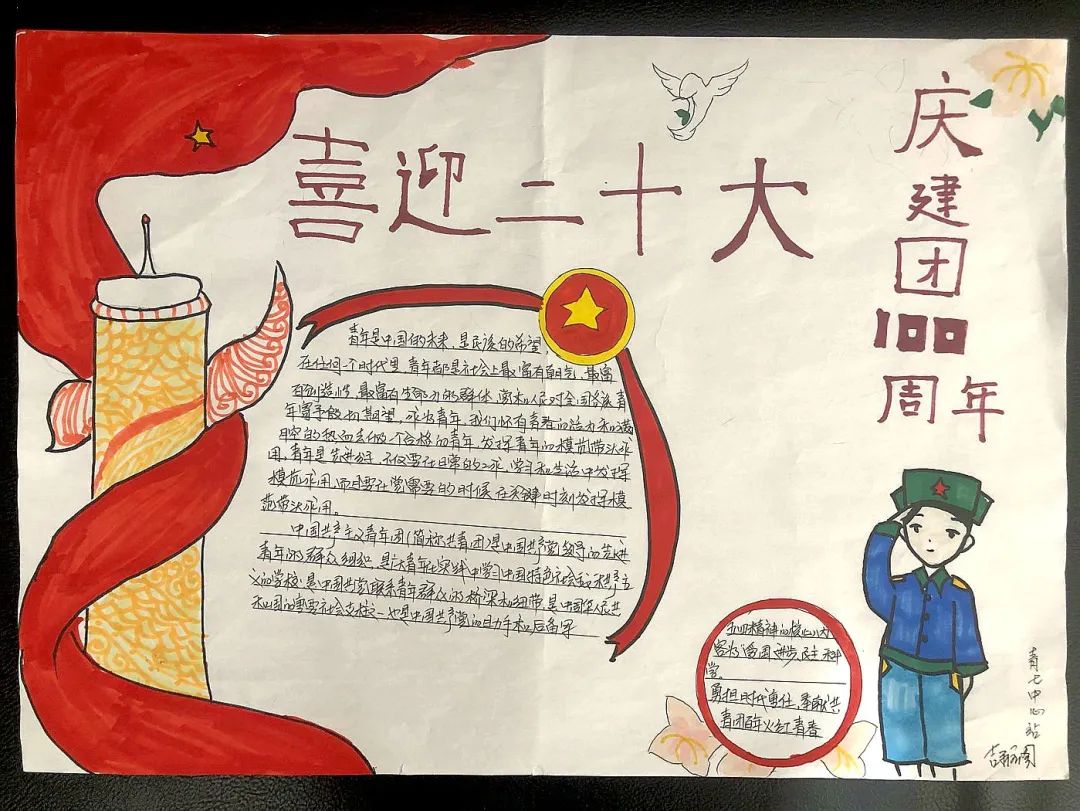 喜迎二十大
庆
建
团
100
周年
青年是中国的未来,是民族的希望,
在任何一个时代里,青年都是社会上最富有朝气、最富
有创造性、最富有生命力的群体,党和人民对全国各族青
年寄予殷切期望,成为青年,我们怀着青春的活力和满
腔的热血去做一个合格的青年,发挥青年的模范带头作
用,青年是先进分子,不仅要在日常的工作,学习和生活中发挥
模范作用,而且要在党需要的时候,在关键时刻发挥模
范带头作用。
中国共产主义青年团(简称共青团)是中国共产党领导的先进
青年的群众组织,是广大青年在实践中学习中国特色社会和共产主
义的学校,是中国共党联系青年群众的桥梁和纽带,是中国华人民共
和国的重要社会支柱之一,也是中国共产党的助手和后备军
五四精神的核心内
容为爱国 进步 民主 科
学。
勇担时代责任,奉献共
青团百年火红青春
青七中心站